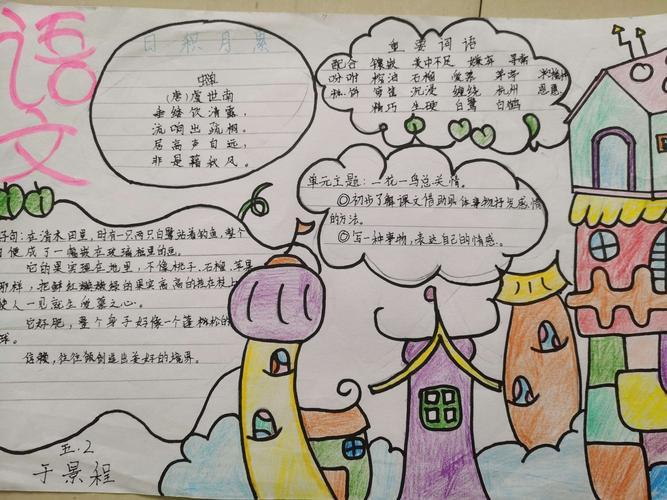 语文
日积月累
蝉
(唐)虞世南
垂緌饮清露，
流响出疏桐。
居高声自远，
非是藉秋风。
重要词语
配合 镶嵌 美中不足 嫌弃 寻常
吩咐 榨油 石榴 爱慕 茅亭
亩 沉浸 缠绕 杭州 恩惠
精巧 生硬 白鹭 白鹤
单元主题：一花一鸟总关情。
◎初步了解课文借助具体事物抒发感情
的方法。
◎写一种事物，表达自己的情感。
好句：在清水田里，时有一只两只白鹭站着钓鱼，整个
便成了一幅嵌在玻璃框里的画。
它的果实埋在地里，不像桃子、石榴、苹果
那样，把鲜红嫩绿的果实高高的挂在枝上
使人一见就生爱慕之心。
它好肥，整个身子好像一个蓬松的
球。
信赖，往往能创造出美好的境界。
五.2
于景程